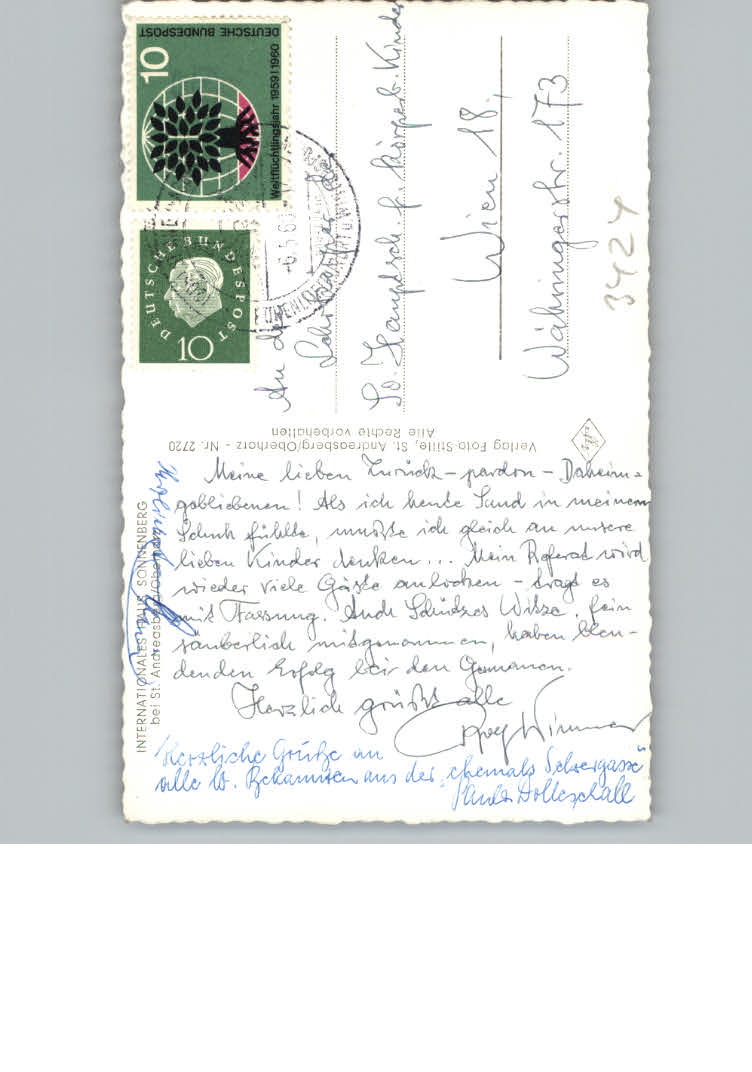 DEUTSCHE BUNDESPOST
10
Weltflüchtlingsjahr 1959/1960
DEUTSCHE BUNDESPOST
10
-6.5.60
An die
Lehrkörper der
So. Hauptsch. f. körperb. Kinder
Wien 18.,
Währingerstr. 173
3424
Verlag Foto-Stille, St. Andreasberg/Oberharz - Nr. 2720
Alle Rechte vorbehalten
INTERNATIONALES HAUS SONNENBERG
bei St. Andreasberg/Oberharz
Meine lieben Zurück - pardon - Daheim=
gebliebenen! Als ich heute Sand in meinem
Schuh fühlte, mußte ich gleich an unsere
lieben Kinder denken... Mein Referat wird
wieder viele Gäste anlocken - tragt es
mit Fassung. Auch Schützes Witze, fein
säuberlich mitgenommen, haben blen-
denden Erfolg bei den Germanen.
Herzlich grüßt alle
Rolf Wimmer
Herzliche Grüße an
alle lb. Bekannten aus der "ehemals